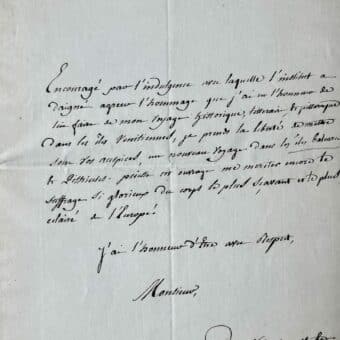 Encouragé par l'indulgence avec laquelle l'institut a
daigné agréer l'hommage que j'ai eu l'honneur de
lui faire de mon Voyage historique, littéraire, & pittoresque
dans les îles Vénitiennes, je prends la liberté de mettre
sous vos auspices, un nouveau Voyage dans les îles Baléares
& Pithiuses. puisse cet ouvrage me mériter encore le
suffrage si glorieux du corps le plus sçavant et le plus
éclairé de l'Europe!
j'ai l'honneur d'Etre avec Respect,
Monsieur,